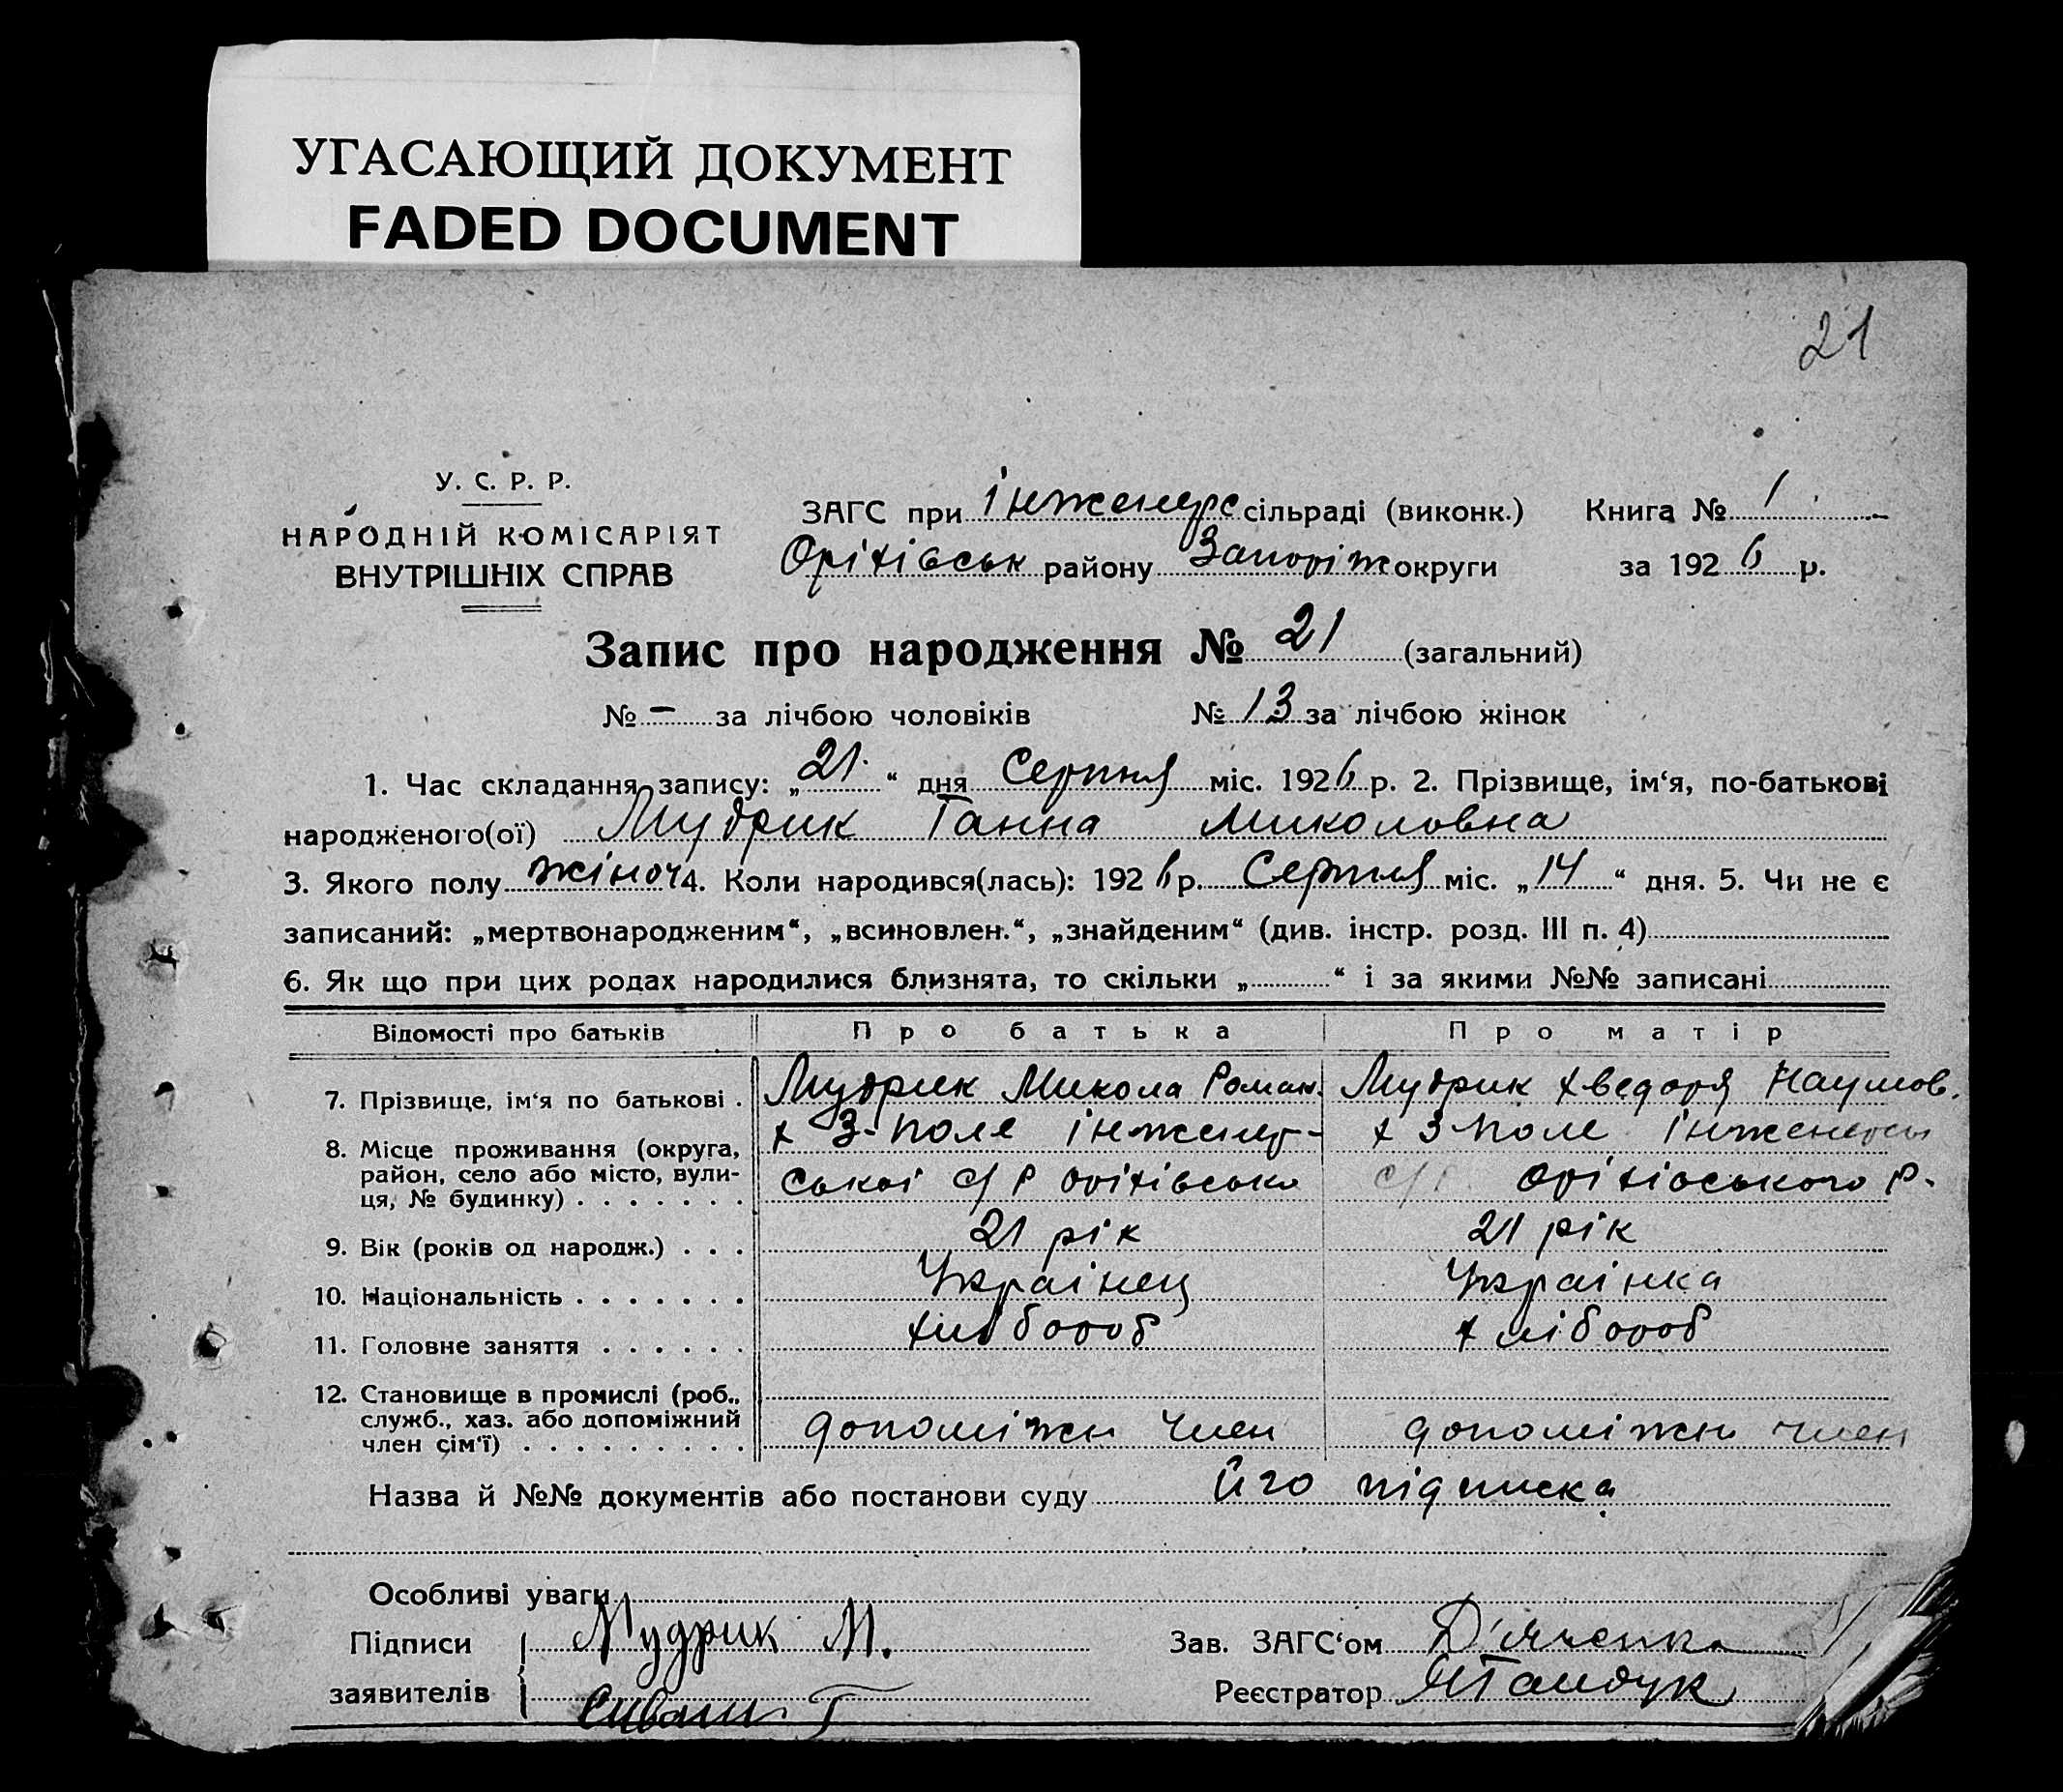 УГАСАЮЩИЙ ДОКУМЕНТ
FADED DOCUMENT
21
У. С. Р. Р.
НАРОДНІЙ КОМІСАРІЯТ
ВНУТРІШНІХ СПРАВ
ЗАГС при Інженерс сільраді (виконк.) Книга № 1
Оріхівськ району Запоріж округи за 1926 р.
Запис про народження № 21 (загальний)
№ – за лічбою чоловіків № 13 за лічбою жінок
1. Час складання запису: „21“ дня Серпня міс. 1926 р. 2. Прізвище, ім‘я, по-батькові
народженого(ої) Мудрик Ганна Миколовна
3. Якого полу жіноч 4. Коли народився(лась): 1926 р. Серпня міс. „14“ дня. 5. Чи не є
записаний: „мертвонародженим“, „всиновлен.“, „знайденим“ (див. інстр. розд. III п. 4)
6. Як що при цих родах народилися близнята, то скільки „ “ і за якими №№ записані
Відомості про батьків Про батька Про матір
7. Прізвище, ім‘я по батькові . Мудрик Микола Роман. Мудрик Хведоря Наумов.
8. Місце проживання (округа, х 3-Поле Інженер- х 3-Поле Інженерсь
район, село або місто, вули- ської с/р Оріхівсько с/р Оріхівського р.
ця, № будинку) . . . . . . .
9. Вік (років од народж.) . . . 21 рік 21 рік
10. Національність . . . . . . . Українец Українка
11. Головне заняття . . . . . . хлібороб хлібороб
12. Становище в промислі (роб.,
служб., хаз. або допоміжний допоміжн член допоміжн член
член сім‘ї) . . . . . . . . .
Назва й №№ документів або постанови суду Його підписка
Особливі уваги
Підписи Мудрик М. Зав. ЗАГС‘ом Д'яченко
заявителів Реєстратор